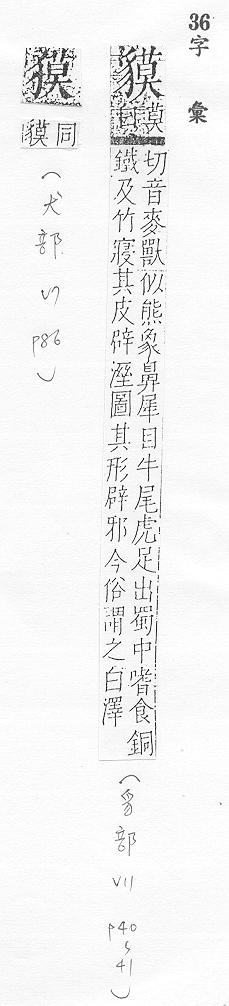 36字彙
貘
切音麥獸似熊象鼻犀目牛尾虎足出蜀中嗜食銅
鐵及竹寢其皮辟溼圖其形辟邪今俗謂之白澤
(豸部 VII p40~41)
獏
同
貘
(犬部 p86)